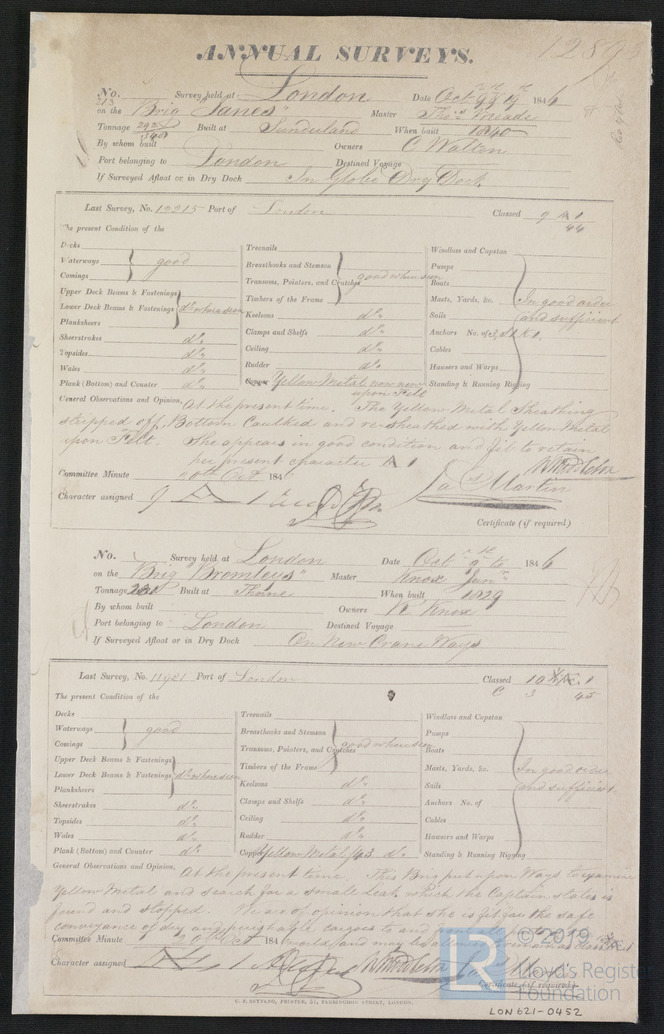 ANNUAL SURVEYS.
No. 213 Survey held at London Date Oct 184 6
on the Brig "Janes" Master
Tonnage Built at Sunderland When built 1840
By whom built Owners C Walton
Port belonging to London Destined Voyage
If Surveyed Afloat or in Dry Dock In Globe Dry Dock
Last Survey, No. 12215 Port of London Classed 9 A 1
44
The present Condition of the
Decks
Waterways good
Comings
Upper Deck Beams & Fastenings
Lower Deck Beams & Fastenings do. where seen
Planksheers
Sheerstrakes do.
Topsides do.
Wales do.
Plank (Bottom) and Counter do.
Treenails
Breasthooks and Stemson
Transoms, Pointers, and Crutches good where seen
Timbers of the Frame
Keelsons do.
Clamps and Shelfs do.
Ceiling do.
Rudder do.
Copper Yellow Metal now new
upon Felt
Windlass and Capstan
Pumps
Boats
Masts, Yards, &c. In good order
Sails and sufficient
Anchors No. of 3,
Cables
Hawsers and Warps
Standing & Running Rigging
General Observations and Opinion, At the present time. The Yellow Metal Sheathing
stripped off, Bottom Caulked and resheathed with Yellow Metal
upon Felt. She appears in good condition and fit to retain
her present character A 1
Committee Minute 20th Oct 184 6
Character assigned 9 A 1
Martin
Certificate (if required)
No. Survey held at London Date Oct 184 6
on the Brig Bromleys" Master Knox Junr.
Tonnage Built at Thorne When built 1829
By whom built Owners R Knox
Port belonging to London Destined Voyage
If Surveyed Afloat or in Dry Dock On New Crane Ways
Last Survey, No. 11921 Port of London Classed 10 Æ 1
45
The present Condition of the
Decks
Waterways good
Comings
Upper Deck Beams & Fastenings
Lower Deck Beams & Fastenings do. where seen
Planksheers
Sheerstrakes do.
Topsides do.
Wales do.
Plank (Bottom) and Counter do.
Treenails
Breasthooks and Stemson
Transoms, Pointers, and Crutches good where seen
Timbers of the Frame
Keelsons do.
Clamps and Shelfs do.
Ceiling do.
Rudder do.
Copper Yellow Metal /43 do.
Windlass and Capstan
Pumps
Boats
Masts, Yards, &c. In good order
Sails and sufficient
Anchors No. of
Cables
Hawsers and Warps
Standing & Running Rigging
General Observations and Opinion, At the present time. This Brig put upon Ways to examine
Yellow Metal and search for a small leak which the Captain states is
found and stopped. We are of opinion that she is fit for the safe
conveyance of dry and perishable cargoes to and
Committee Minute 20 Oct 184 world, and may be
Character assigned
Certificate (if required)
© 2019
LR
Lloyd's Register
Foundation
LON621-0452